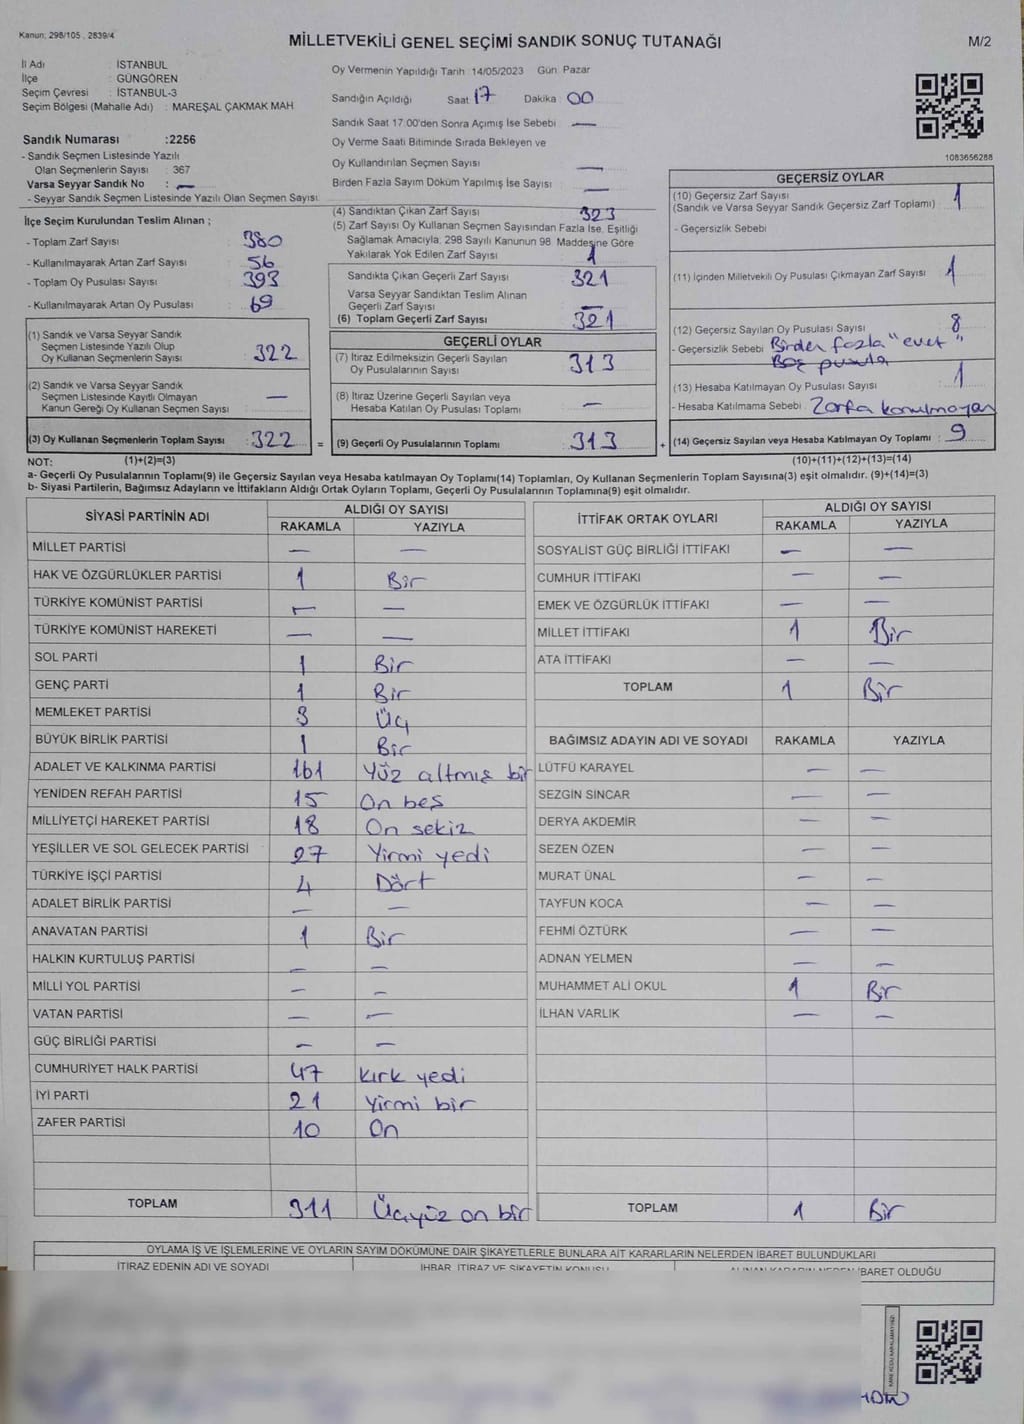 Kanun: 298/105 , 2839/4
MİLLETVEKİLİ GENEL SEÇİMİ SANDIK SONUÇ TUTANAĞI
M/2
İl Adı : İSTANBUL
İlçe : GÜNGÖREN
Seçim Çevresi : İSTANBUL-3
Seçim Bölgesi (Mahalle Adı) : MAREŞAL ÇAKMAK MAH
Oy Vermenin Yapıldığı Tarih 14/05/2023 Gün Pazar
Sandığın Açıldığı Saat 17 Dakika 00
Sandık Saat 17:00'den Sonra Açımış İse Sebebi —
Oy Verme Saati Bitiminde Sırada Bekleyen ve
Oy Kullandırılan Seçmen Sayısı —
Birden Fazla Sayım Döküm Yapılmış İse Sayısı —
1083656288
Sandık Numarası :2256
- Sandık Seçmen Listesinde Yazılı
Olan Seçmenlerin Sayısı : 367
Varsa Seyyar Sandık No : —
- Seyyar Sandık Seçmen Listesinde Yazılı Olan Seçmen Sayısı:
İlçe Seçim Kurulundan Teslim Alınan ;
- Toplam Zarf Sayısı : 380
- Kullanılmayarak Artan Zarf Sayısı : 56
- Toplam Oy Pusulası Sayısı : 393
- Kullanılmayarak Artan Oy Pusulası : 69
(1) Sandık ve Varsa Seyyar Sandık
Seçmen Listesinde Yazılı Olup
Oy Kullanan Seçmenlerin Sayısı : 322
(2) Sandık ve Varsa Seyyar Sandık
Seçmen Listesinde Kayıtlı Olmayan
Kanun Gereği Oy Kullanan Seçmen Sayısı : —
(3) Oy Kullanan Seçmenlerin Toplam Sayısı : 322 =
(4) Sandıktan Çıkan Zarf Sayısı 323
(5) Zarf Sayısı Oy Kullanan Seçmen Sayısından Fazla İse, Eşitliği
Sağlamak Amacıyla, 298 Sayılı Kanunun 98 Maddesine Göre
Yakılarak Yok Edilen Zarf Sayısı 1
Sandıkta Çıkan Geçerli Zarf Sayısı 321
Varsa Seyyar Sandıktan Teslim Alınan
Geçerli Zarf Sayısı —
(6) Toplam Geçerli Zarf Sayısı 321
GEÇERLİ OYLAR
(7) İtiraz Edilmeksizin Geçerli Sayılan
Oy Pusulalarının Sayısı 313
(8) İtiraz Üzerine Geçerli Sayılan veya
Hesaba Katılan Oy Pusulası Toplamı —
(9) Geçerli Oy Pusulalarının Toplamı 313 +
GEÇERSİZ OYLAR
(10) Geçersiz Zarf Sayısı
(Sandık ve Varsa Seyyar Sandık Geçersiz Zarf Toplamı) 1
- Geçersizlik Sebebi
(11) İçinden Milletvekili Oy Pusulası Çıkmayan Zarf Sayısı : 1
(12) Geçersiz Sayılan Oy Pusulası Sayısı : 8
- Geçersizlik Sebebi Birden fazla "evet"
Boş pusula
(13) Hesaba Katılmayan Oy Pusulası Sayısı : 1
- Hesaba Katılmama Sebebi : Zarfa konulmayan
(14) Geçersiz Sayılan veya Hesaba Katılmayan Oy Toplamı : 9
NOT: (1)+(2)=(3)
(10)+(11)+(12)+(13)=(14)
a- Geçerli Oy Pusulalarının Toplamı(9) ile Geçersiz Sayılan veya Hesaba katılmayan Oy Toplamı(14) Toplamları, Oy Kullanan Seçmenlerin Toplam Sayısına(3) eşit olmalıdır. (9)+(14)=(3)
b- Siyasi Partilerin, Bağımsız Adayların ve İttifakların Aldığı Ortak Oyların Toplamı, Geçerli Oy Pusulalarının Toplamına(9) eşit olmalıdır.
SİYASİ PARTİNİN ADI
ALDIĞI OY SAYISI
RAKAMLA YAZIYLA
MİLLET PARTİSİ — —
HAK VE ÖZGÜRLÜKLER PARTİSİ 1 Bir
TÜRKİYE KOMÜNİST PARTİSİ — —
TÜRKİYE KOMÜNİST HAREKETİ — —
SOL PARTİ 1 Bir
GENÇ PARTİ 1 Bir
MEMLEKET PARTİSİ 3 Üç
BÜYÜK BİRLİK PARTİSİ 1 Bir
ADALET VE KALKINMA PARTİSİ 161 Yüz altmış bir
YENİDEN REFAH PARTİSİ 15 On beş
MİLLİYETÇİ HAREKET PARTİSİ 18 On sekiz
YEŞİLLER VE SOL GELECEK PARTİSİ 27 Yirmi yedi
TÜRKİYE İŞÇİ PARTİSİ 4 Dört
ADALET BİRLİK PARTİSİ — —
ANAVATAN PARTİSİ 1 Bir
HALKIN KURTULUŞ PARTİSİ — —
MİLLİ YOL PARTİSİ — —
VATAN PARTİSİ — —
GÜÇ BİRLİĞİ PARTİSİ — —
CUMHURİYET HALK PARTİSİ 47 kırk yedi
İYİ PARTİ 21 Yirmi bir
ZAFER PARTİSİ 10 On
TOPLAM 311 Üçyüz on bir
İTTİFAK ORTAK OYLARI
ALDIĞI OY SAYISI
RAKAMLA YAZIYLA
SOSYALİST GÜÇ BİRLİĞİ İTTİFAKI — —
CUMHUR İTTİFAKI — —
EMEK VE ÖZGÜRLÜK İTTİFAKI — —
MİLLET İTTİFAKI 1 Bir
ATA İTTİFAKI — —
TOPLAM 1 Bir
BAĞIMSIZ ADAYIN ADI VE SOYADI RAKAMLA YAZIYLA
LÜTFÜ KARAYEL — —
SEZGİN SİNCAR — —
DERYA AKDEMİR — —
SEZEN ÖZEN — —
MURAT ÜNAL — —
TAYFUN KOCA — —
FEHMİ ÖZTÜRK — —
ADNAN YELMEN — —
MUHAMMET ALİ OKUL 1 Bir
İLHAN VARLIK — —
TOPLAM 1 Bir
OYLAMA İŞ VE İŞLEMLERİNE VE OYLARIN SAYIM DÖKÜMÜNE DAİR ŞİKAYETLERLE BUNLARA AİT KARARLARIN NELERDEN İBARET BULUNDUKLARI
İTİRAZ EDENİN ADI VE SOYADI İHBAR, İTİRAZ VE ŞİKAYETİN KONUSU ALINAN KARARIN NEDEN İBARET OLDUĞU